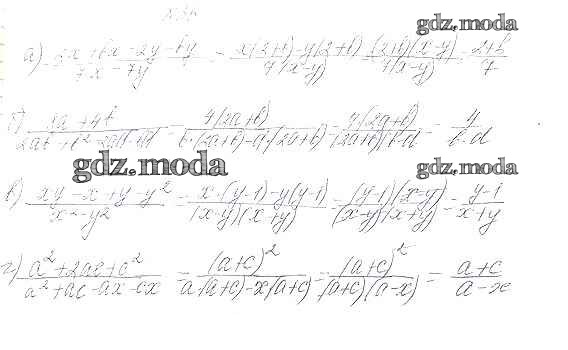 gdz.moda
а) (2x + bx - 2y - by)/(7x - 7y) = (x(2+b) - y(2+b))/(7(x-y)) = ((2+b)(x-y))/(7(x-y)) = (2+b)/7
б) (8a + 4b)/(2ab + b² - 2ad - bd) = (4(2a+b))/(b·(2a+b) - d·(2a+b)) = (4(2a+b))/((2a+b)(b-d)) = 4/(b-d)
gdz.moda gdz.moda
в) (xy - x + y - y²)/(x² - y²) = (x·(y-1) - y(y-1))/((x-y)(x+y)) = ((y-1)(x-y))/((x-y)(x+y)) = (y-1)/(x+y)
г) (a² + 2ac + c²)/(a² + ac - ax - cx) = (a+c)²/(a(a+c) - x(a+c)) = (a+c)²/((a+c)(a-x)) = (a+c)/(a-x)